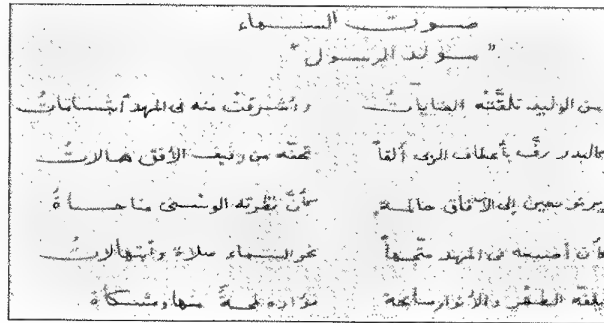 صوت السماء
"مولد الرسول"
من الوليد تلقّته العنايات وأشرقت منه فى المهد ابتسامات
كالبدر رفّ بأعطاف الربى ألقاً تحفّه من رفيف الأفق هالات
يرنو بعين إلى الآفاق حالمة كأنّ نظرته الوسنى مناجاة
كأن أصبعه فى المهد متّجهاً نحو السماء صلاة وابتهالات
الطهر والأنوار سابحة فؤاده لمحة منها ومشكاة